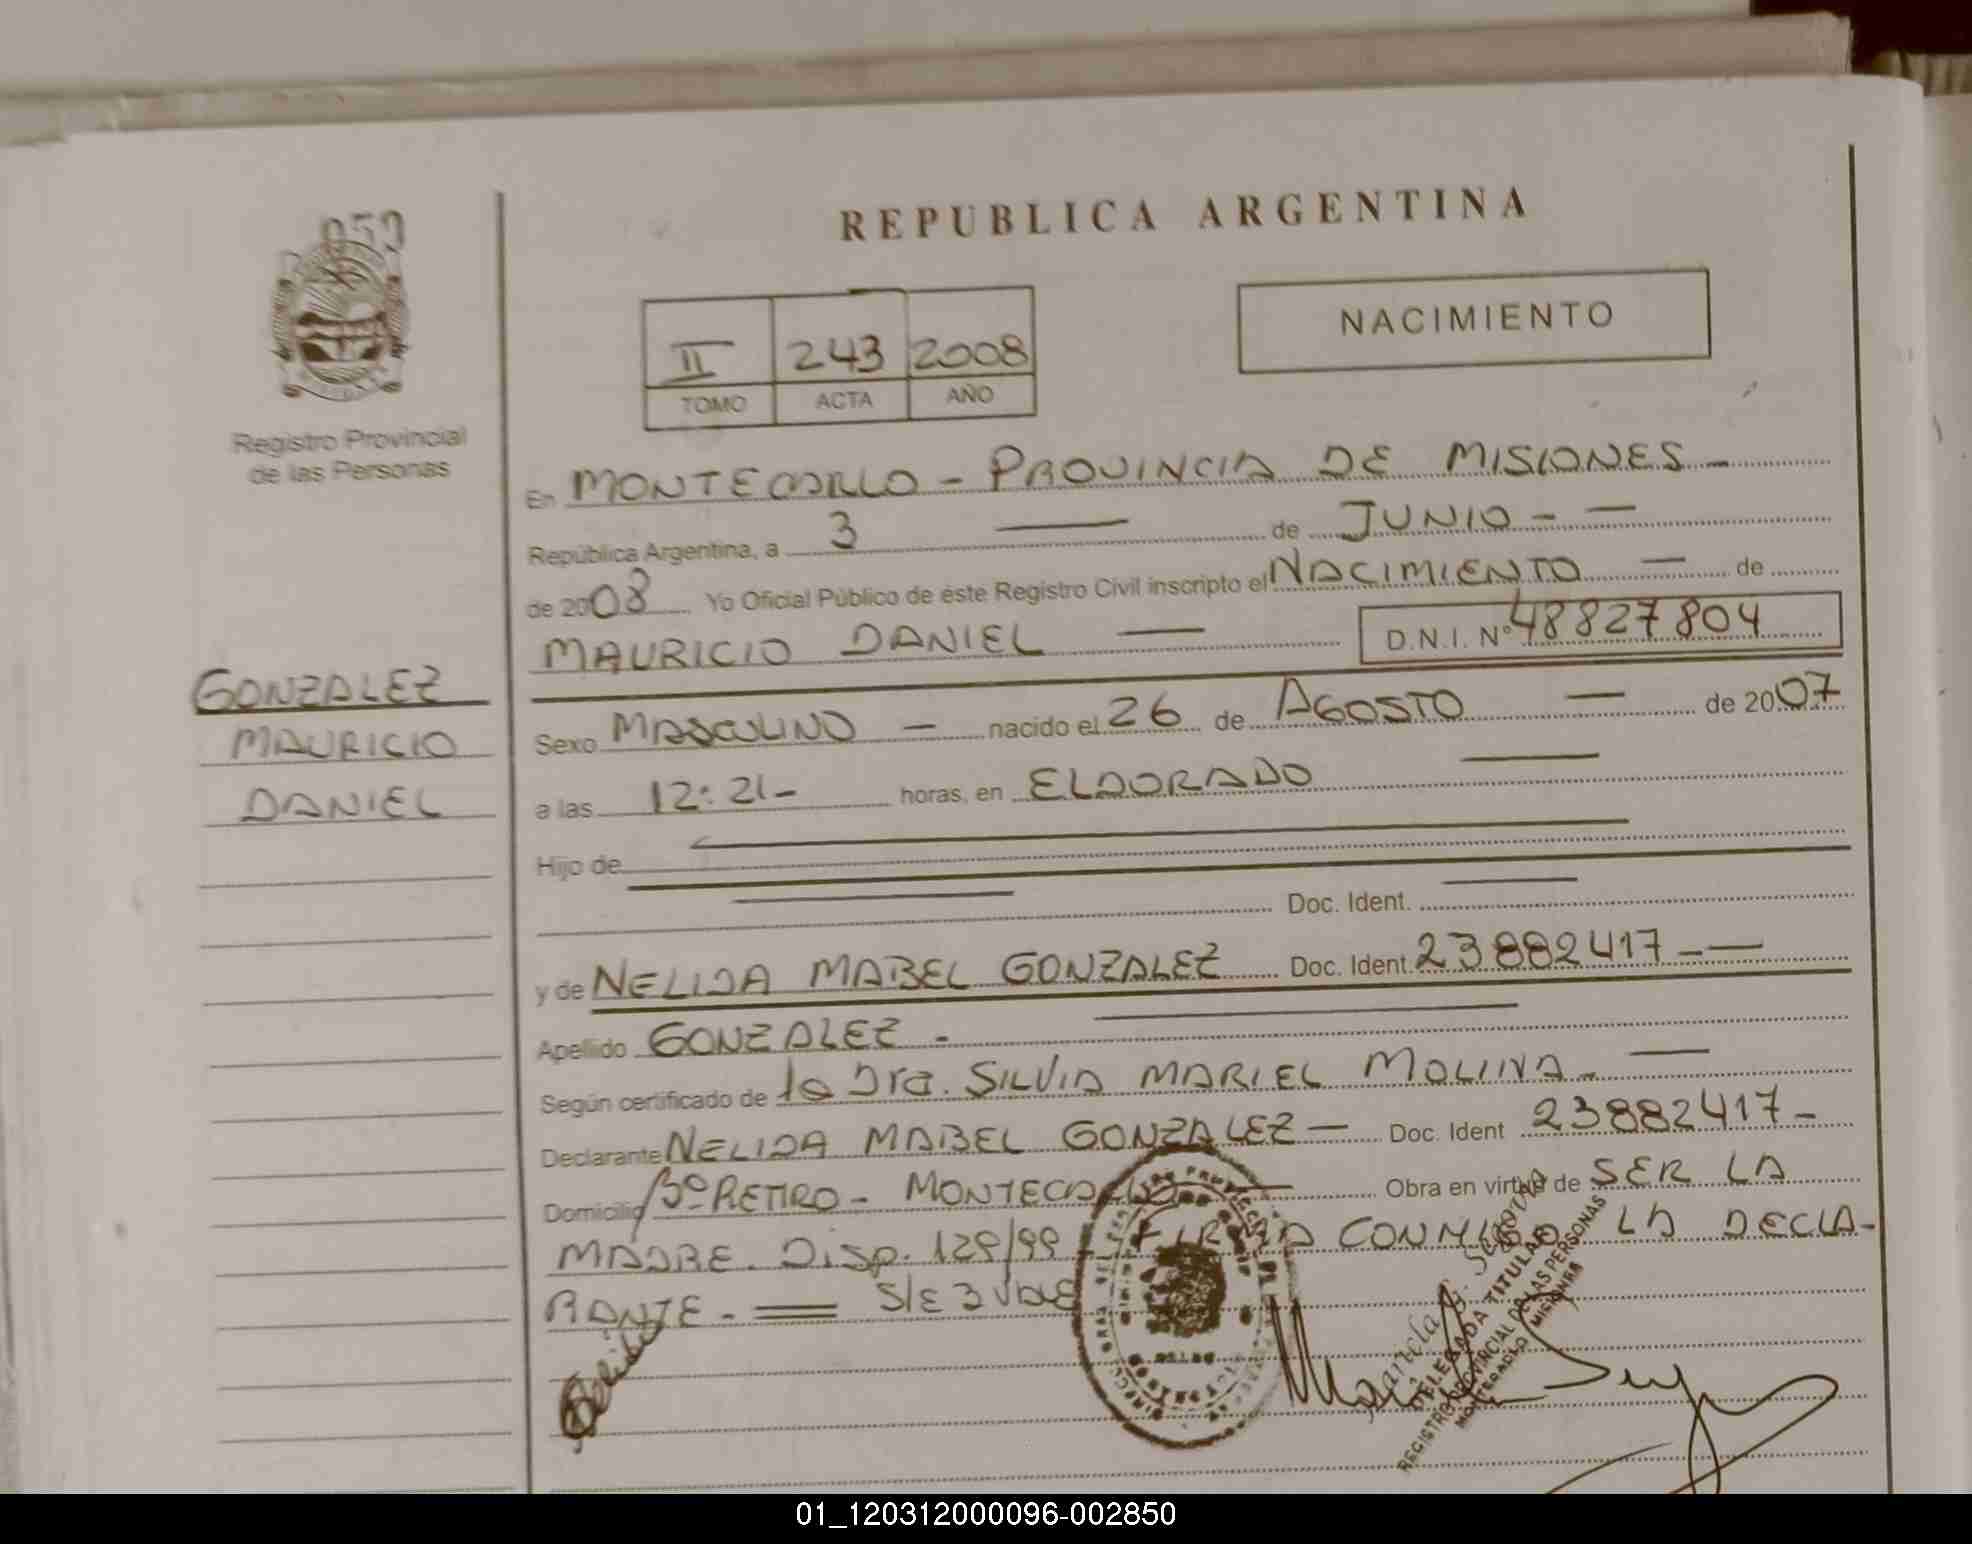 059
REPUBLICA ARGENTINA
NACIMIENTO
II 243 2008
TOMO ACTA AÑO
Registro Provincial
de las Personas
En MONTECARLO - PROVINCIA DE MISIONES -
República Argentina, a 3 — de JUNIO - -
de 2008 Yo Oficial Público de éste Registro Civil inscripto el NACIMIENTO — de
MAURICIO DANIEL — D.N.I. Nº 48827804
GONZALEZ
MAURICIO
DANIEL
Sexo MASCULINO — nacido el 26 de AGOSTO — de 2007
a las 12:21- horas, en ELDORADO —
Hijo de
Doc. Ident.
y de NELIDA MABEL GONZALEZ Doc. Ident. 23882417 - —
Apellido GONZALEZ -
Según certificado de la Dra. SILVIA MARIEL MOLINA - —
Declarante NELIDA MABEL GONZALEZ — Doc. Ident 23882417 -
Domicilio Bº RETIRO - MONTECARLO — Obra en virtud de SER LA
MADRE. Disp. 129/99 - FIRMA CONMIGO LA DECLA-
RANTE - S/E 3 VALE
DELEGADA TITULAR
REGISTRO PROVINCIAL DE LAS PERSONAS
MONTECARLO MISIONES
01_120312000096-002850